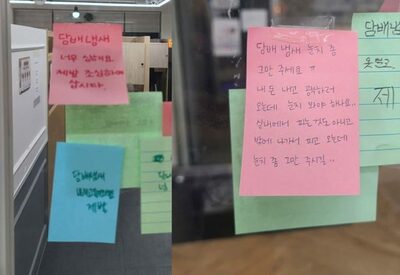 담배냄새
너무 심해요.
제발 조심하며
삽시다.
담배냄새
제발
담배 냄새 눈치 좀
그만 주세요 ㅠ
내 돈 내고 공부하러
왔는데 눈치 봐야 하나요..
실내에서 피는것도 아니고
밖에 나가서 피고 오는데
눈치 좀 그만 주시길..
담배냄
제